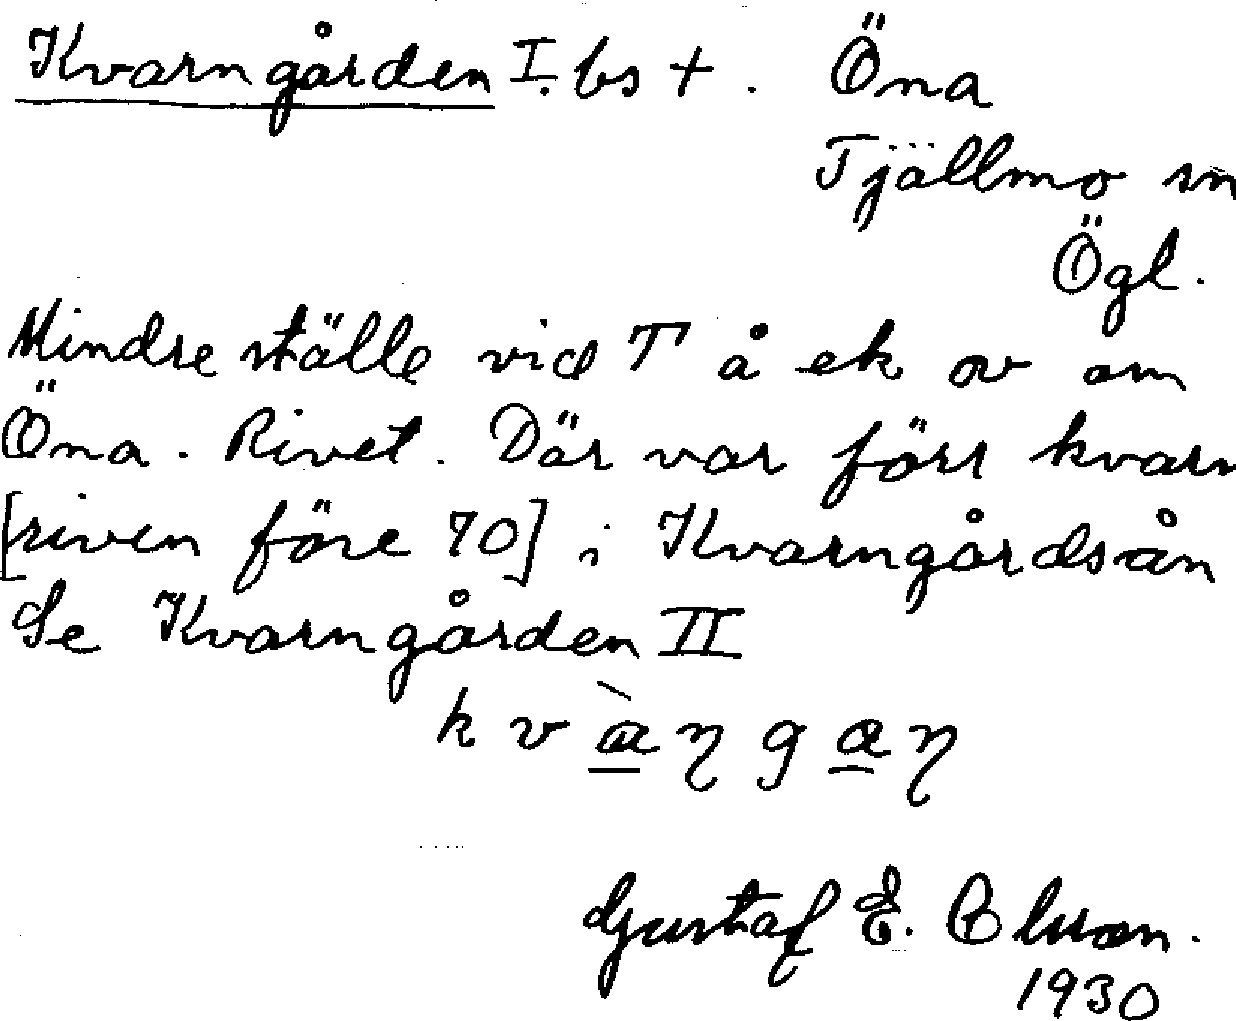 Kvarngården I. bs +. Öna
Tjällmo sn
Ögl.
Mindre ställe vid T å ek ov om
Öna. Rivet. Där var förr kvarn
[riven före 70] i Kvarngårdsån
Se Kvarngården II
Gustaf E. Olsson.
1930